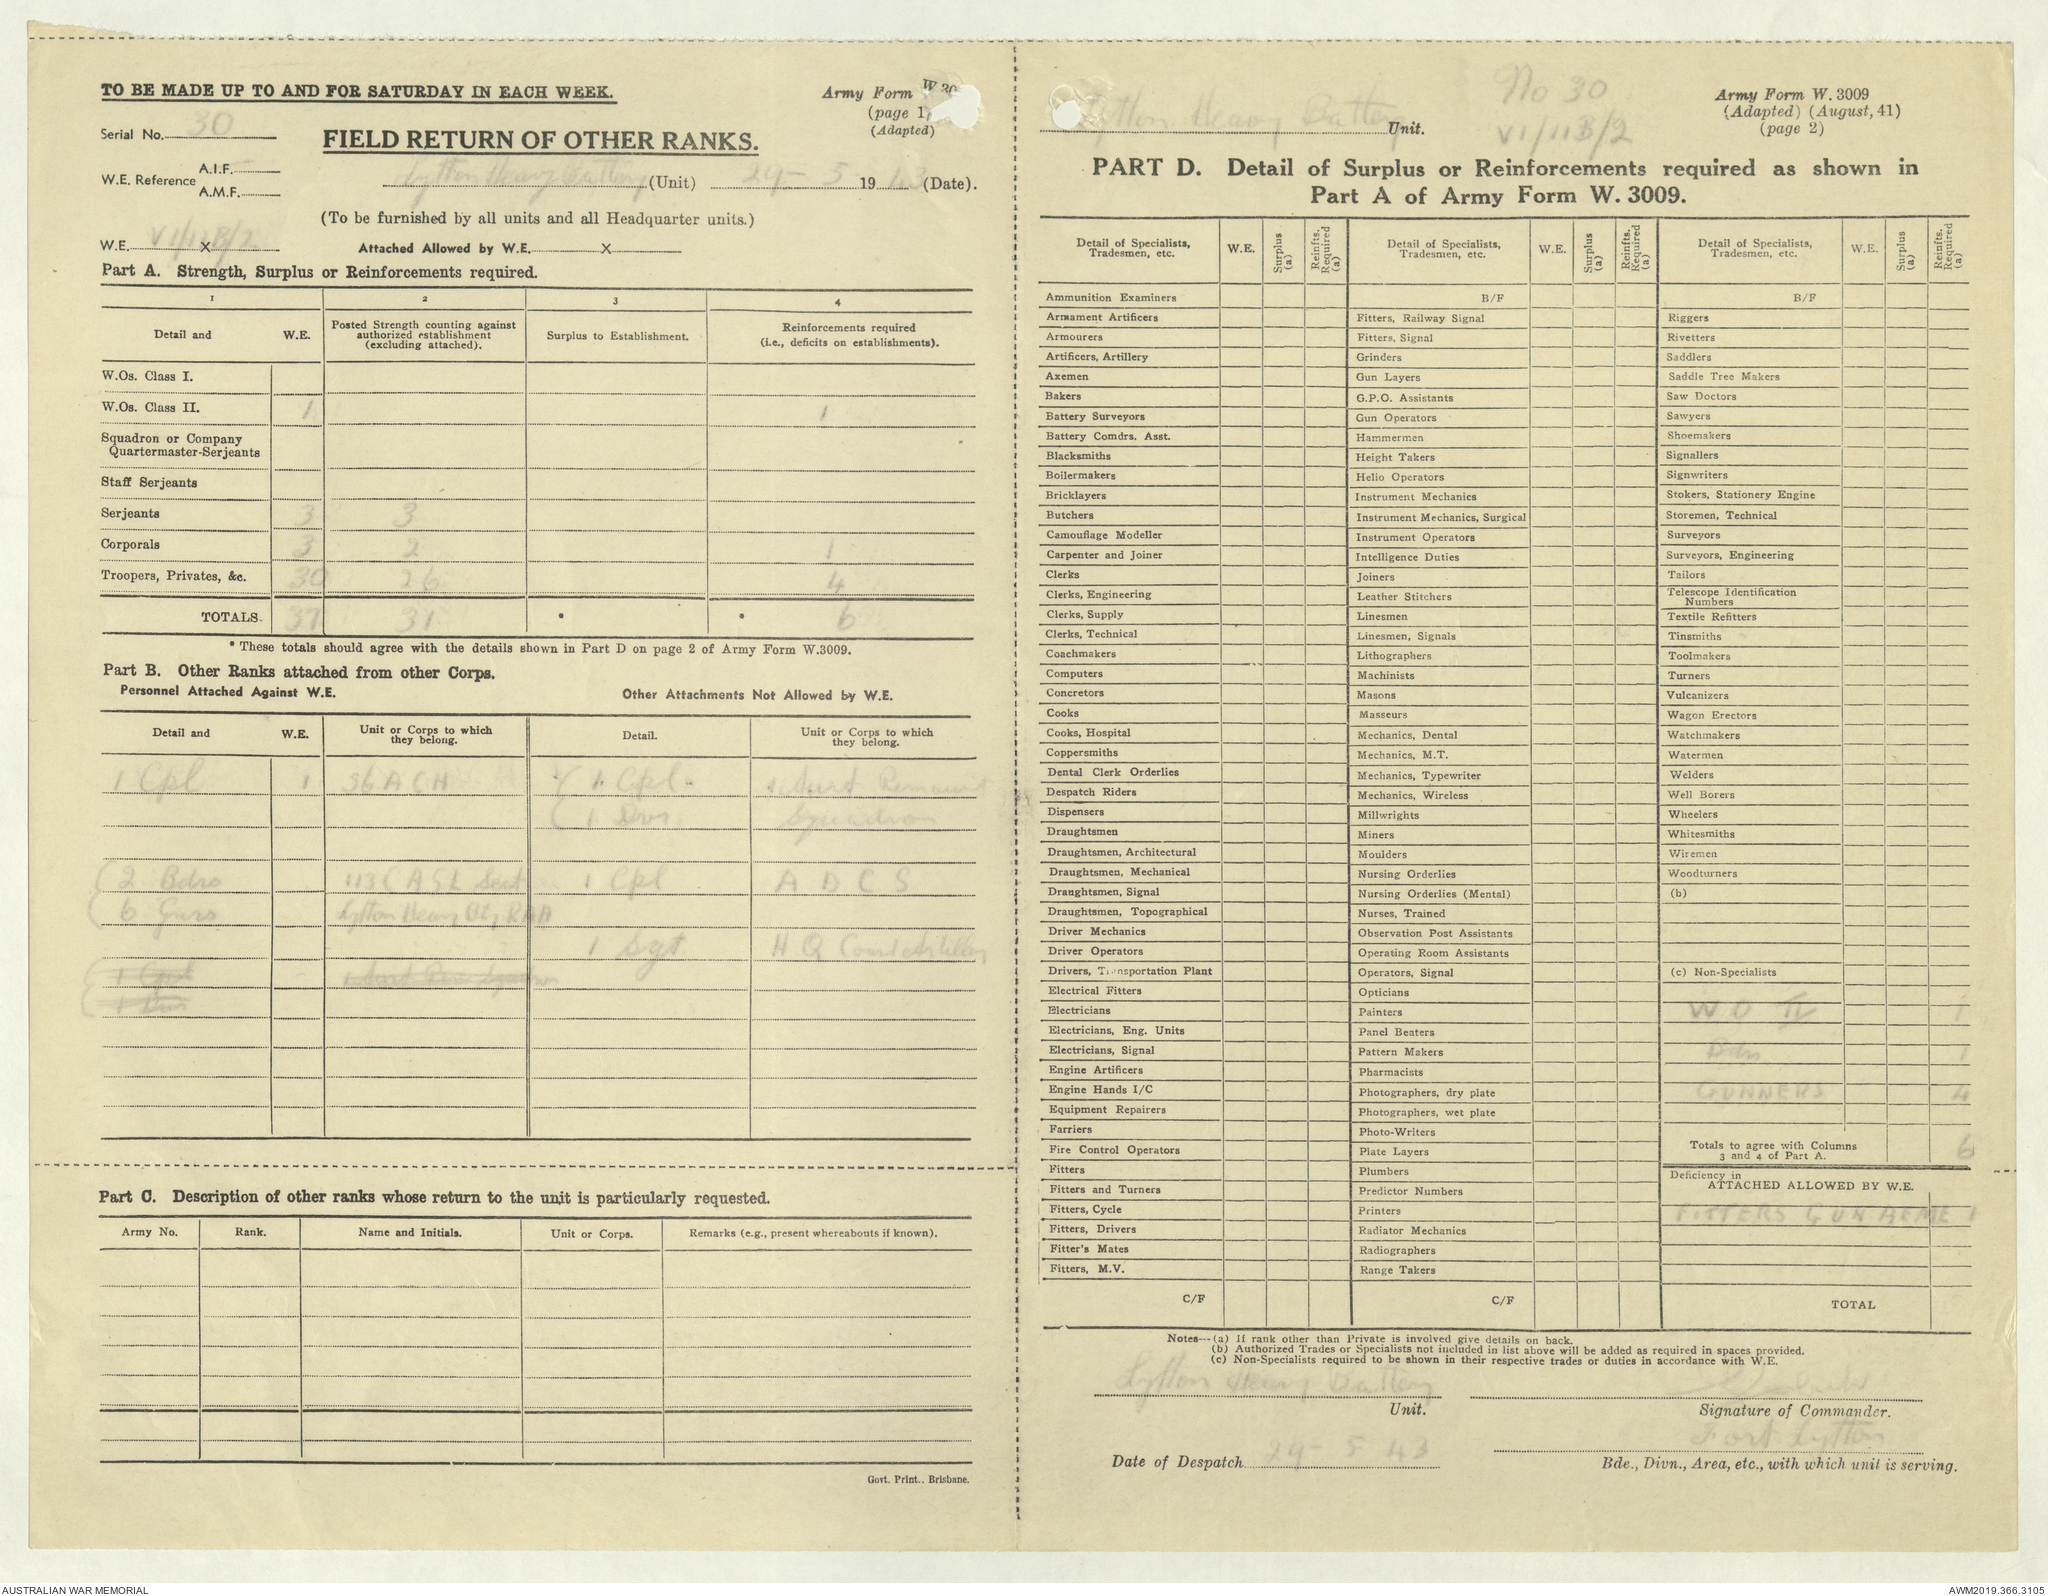 TO BE MADE UP TO AND FOR SATURDAY IN EACH WEEK.
Army Form W 30
(page 1)
(Adapted)
Serial No. 30
FIELD RETURN OF OTHER RANKS.
W.E. Reference A.I.F.
A.M.F.
Lytton Heavy Battery (Unit) 29 - 5 1943 (Date).
(To be furnished by all units and all Headquarter units.)
W.E. VI/11B/2 X Attached Allowed by W.E. X
Part A. Strength, Surplus or Reinforcements required.
1 2 3 4
Detail and W.E. Posted Strength counting against authorized establishment (excluding attached). Surplus to Establishment. Reinforcements required (i.e., deficits on establishments).
W.Os. Class I.
W.Os. Class II. 1 1
Squadron or Company
Quartermaster-Serjeants
Staff Serjeants
Serjeants 3 3
Corporals 3 2 1
Troopers, Privates, &c. 30 26 4
TOTALS. 37 31 * * 6
* These totals should agree with the details shown in Part D on page 2 of Army Form W.3009.
Part B. Other Ranks attached from other Corps.
Personnel Attached Against W.E. Other Attachments Not Allowed by W.E.
Detail and W.E. Unit or Corps to which they belong. Detail. Unit or Corps to which they belong.
1 Cpl 1 36 A C H 1 Cpl. Aust Remount
1 Dvr. Squadron
2 Bdrs 113 C A S L Sect 1 Cpl A D C S
6 Gnrs Lytton Heavy Bty RAA
1 Sgt H Q Coast Artillery
1 Cpl
1 Dvr
Part C. Description of other ranks whose return to the unit is particularly requested.
Army No. Rank. Name and Initials. Unit or Corps. Remarks (e.g., present whereabouts if known).
Govt. Print., Brisbane.
Lytton Heavy Battery Unit.
No 30
VI/11B/2
Army Form W. 3009
(Adapted) (August, 41)
(page 2)
PART D. Detail of Surplus or Reinforcements required as shown in
Part A of Army Form W. 3009.
Detail of Specialists, Tradesmen, etc. W.E. Surplus (a) Reinfts. Required (a) Detail of Specialists, Tradesmen, etc. W.E. Surplus (a) Reinfts. Required (a) Detail of Specialists, Tradesmen, etc. W.E. Surplus (a) Reinfts. Required (a)
Ammunition Examiners B/F B/F
Armament Artificers Fitters, Railway Signal Riggers
Armourers Fitters, Signal Rivetters
Artificers, Artillery Grinders Saddlers
Axemen Gun Layers Saddle Tree Makers
Bakers G.P.O. Assistants Saw Doctors
Battery Surveyors Gun Operators Sawyers
Battery Comdrs. Asst. Hammermen Shoemakers
Blacksmiths Height Takers Signallers
Boilermakers Helio Operators Signwriters
Bricklayers Instrument Mechanics Stokers, Stationery Engine
Butchers Instrument Mechanics, Surgical Storemen, Technical
Camouflage Modeller Instrument Operators Surveyors
Carpenter and Joiner Intelligence Duties Surveyors, Engineering
Clerks Joiners Tailors
Clerks, Engineering Leather Stitchers Telescope Identification Numbers
Clerks, Supply Linesmen Textile Refitters
Clerks, Technical Linesmen, Signals Tinsmiths
Coachmakers Lithographers Toolmakers
Computers Machinists Turners
Concretors Masons Vulcanizers
Cooks Masseurs Wagon Erectors
Cooks, Hospital Mechanics, Dental Watchmakers
Coppersmiths Mechanics, M.T. Watermen
Dental Clerk Orderlies Mechanics, Typewriter Welders
Despatch Riders Mechanics, Wireless Well Borers
Dispensers Millwrights Wheelers
Draughtsmen Miners Whitesmiths
Draughtsmen, Architectural Moulders Wiremen
Draughtsmen, Mechanical Nursing Orderlies Woodturners
Draughtsmen, Signal Nursing Orderlies (Mental) (b)
Draughtsmen, Topographical Nurses, Trained
Driver Mechanics Observation Post Assistants
Driver Operators Operating Room Assistants
Drivers, Transportation Plant Operators, Signal (c) Non-Specialists
Electrical Fitters Opticians
Electricians Painters W O II 1
Electricians, Eng. Units Panel Beaters
Electricians, Signal Pattern Makers Bdrs 1
Engine Artificers Pharmacists
Engine Hands I/C Photographers, dry plate GUNNERS 4
Equipment Repairers Photographers, wet plate
Farriers Photo-Writers
Fire Control Operators Plate Layers Totals to agree with Columns 3 and 4 of Part A. 6
Fitters Plumbers Deficiency in
Fitters and Turners Predictor Numbers ATTACHED ALLOWED BY W.E.
Fitters, Cycle Printers FITTERS GUN AEME 1
Fitters, Drivers Radiator Mechanics
Fitter's Mates Radiographers
Fitters, M.V. Range Takers
C/F C/F TOTAL
Notes---(a) If rank other than Private is involved give details on back.
(b) Authorized Trades or Specialists not included in list above will be added as required in spaces provided.
(c) Non-Specialists required to be shown in their respective trades or duties in accordance with W.E.
Lytton Heavy Battery
Unit. Signature of Commander.
Fort Lytton
Date of Despatch 29 - 5 43 Bde., Divn., Area, etc., with which unit is serving.
AUSTRALIAN WAR MEMORIAL AWM2019.366.3105